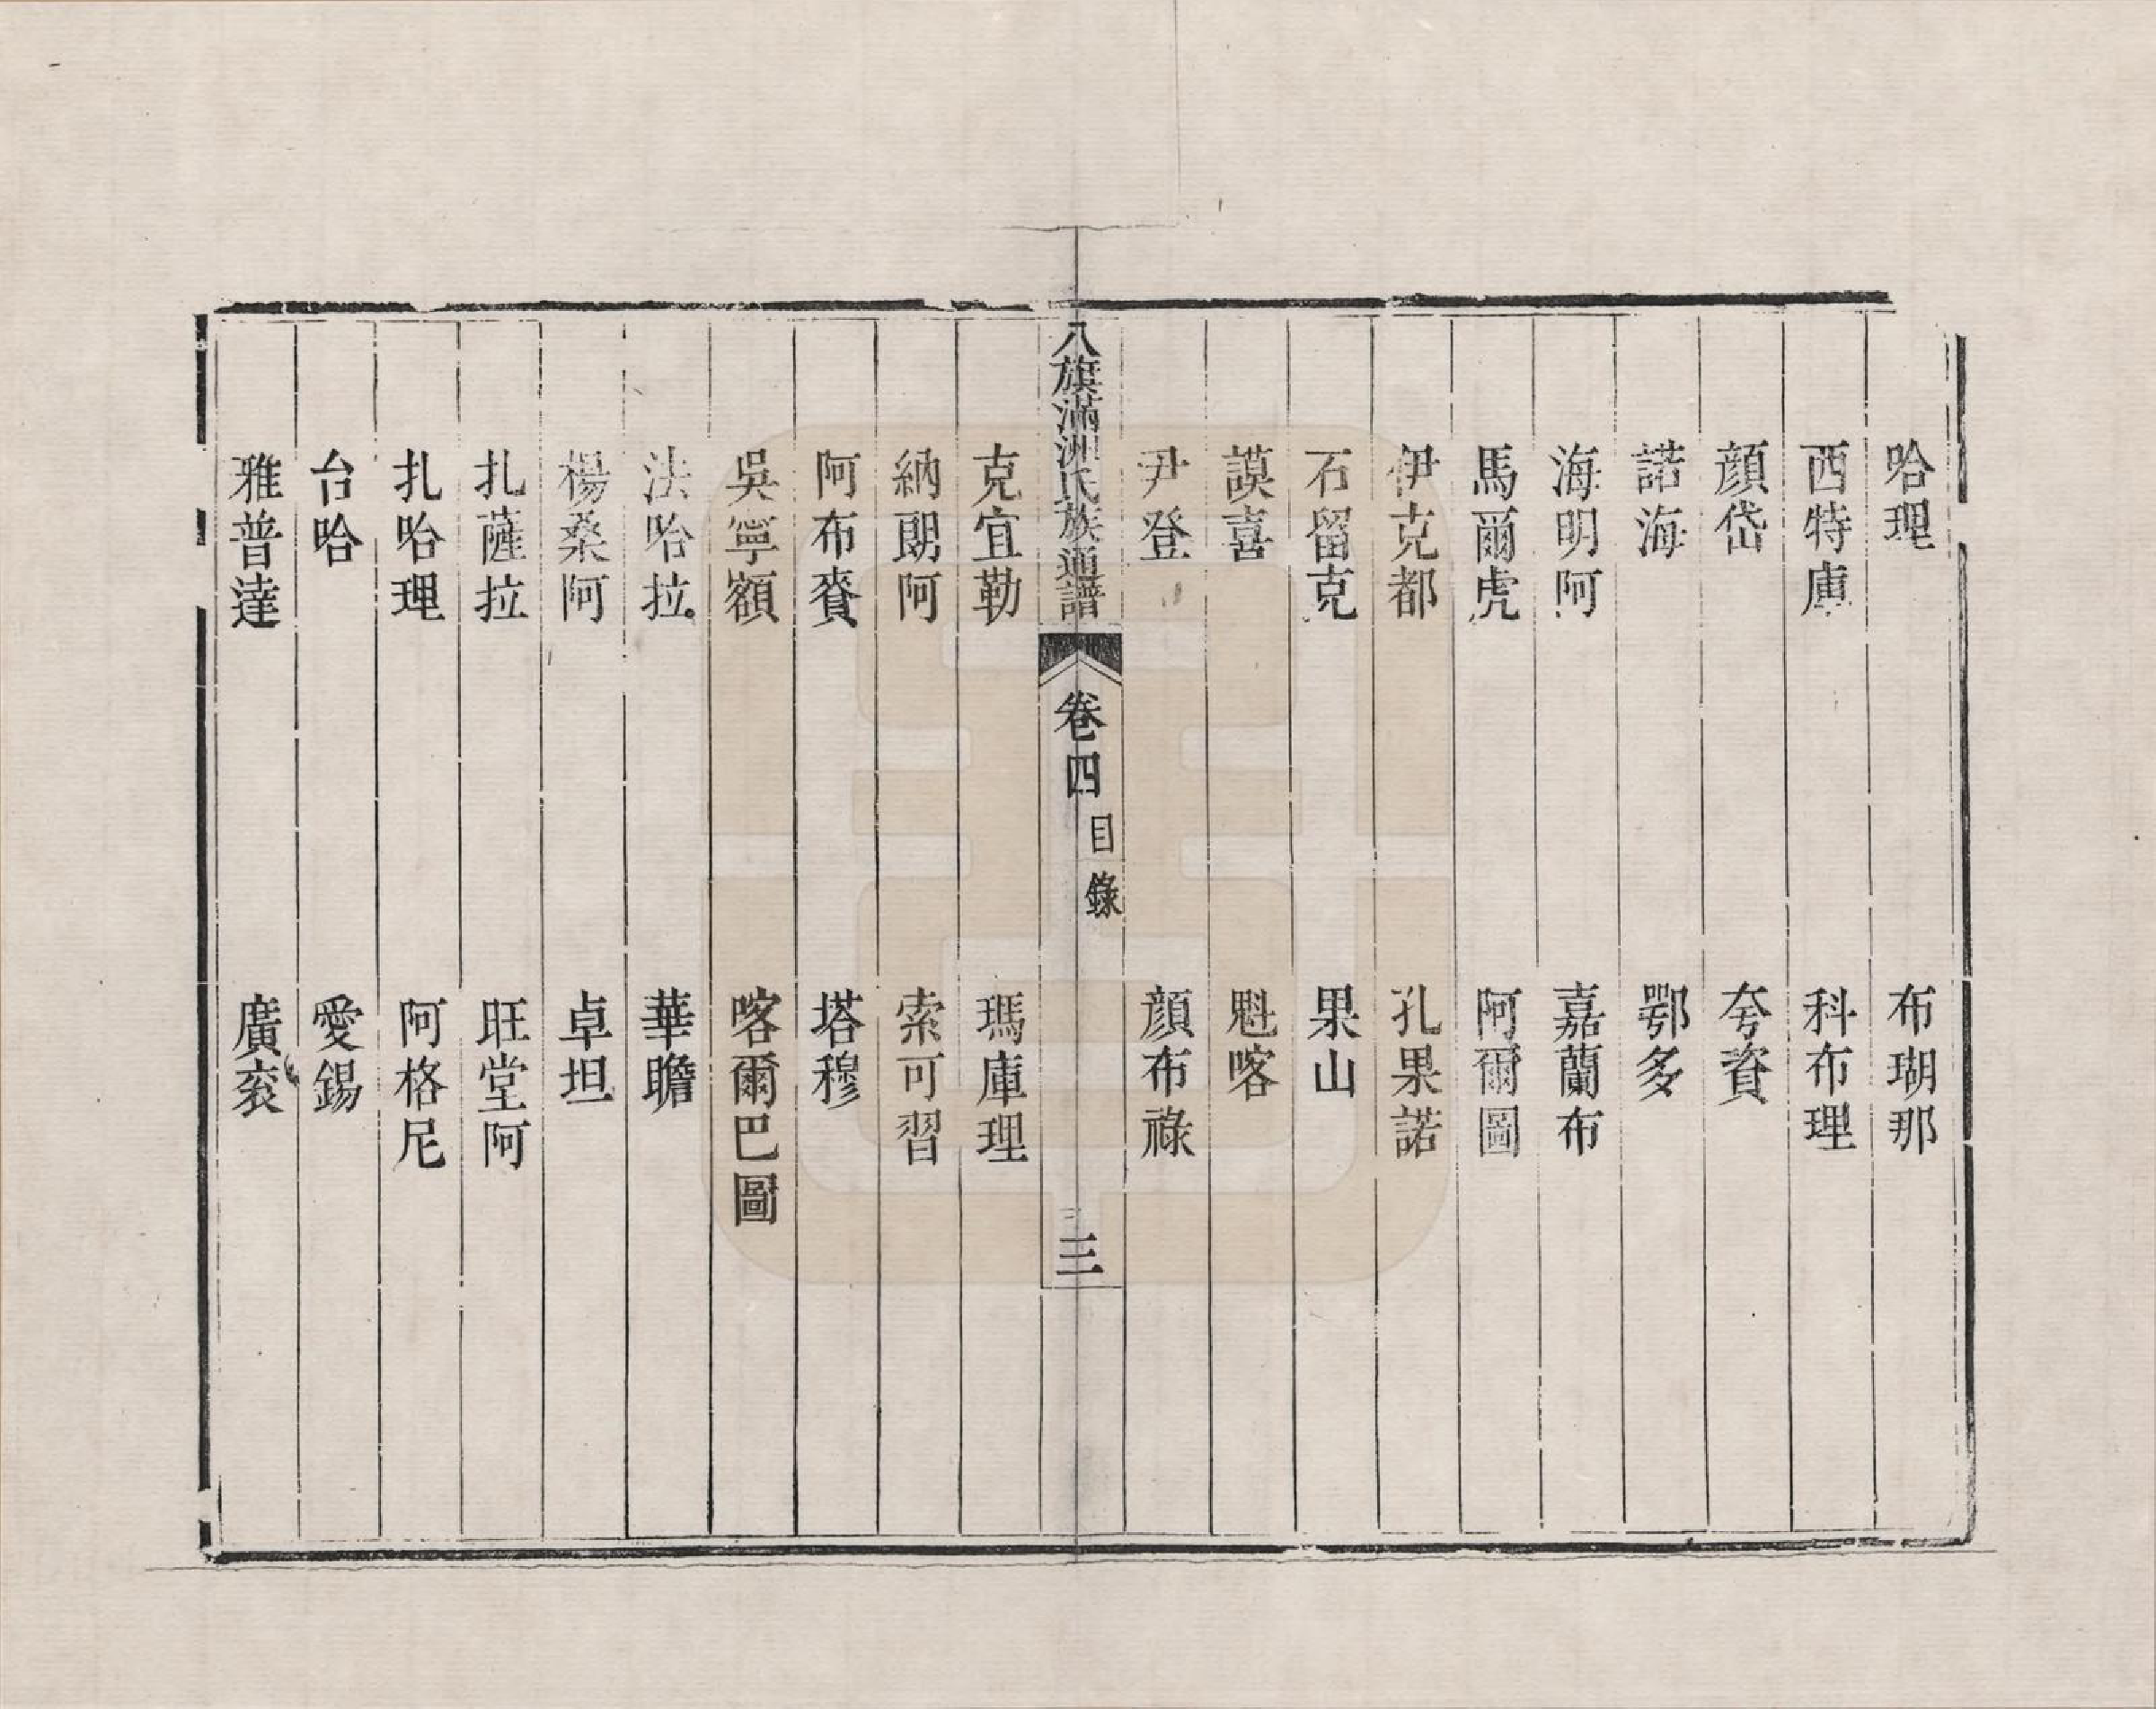 哈理　布瑚那
西特庫　科布理
顔岱　夸資
諾海　鄂多
海明阿　嘉蘭布
馬爾虎　阿爾圖
伊克都　孔果諾
石留克　果山
謨喜　魁喀
尹登　顔布祿
八旗滿洲氏族通譜　卷四　目錄　三
克宜勒　瑪庫理
納朗阿　索可習
阿布賚　塔穆
吳寧額　喀爾巴圖
法哈拉　華瞻
楊桑阿　卓坦
扎薩拉　旺堂阿
扎哈理　阿格尼
台哈　愛錫
雅普達　廣袞